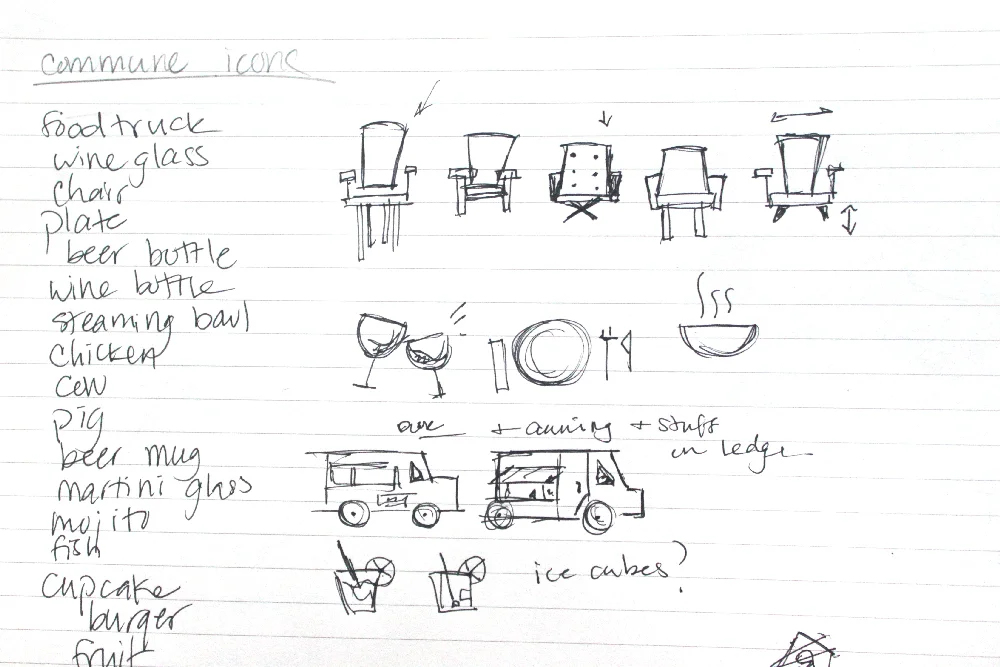 commune icons
food truck
wine glass
chair
plate
beer bottle
wine bottle
steaming bowl
chicken
cow
pig
beer mug
martini glass
mojito
fish
cupcake
burger
fruit
+ awning + stuff
on ledge
ice cubes?